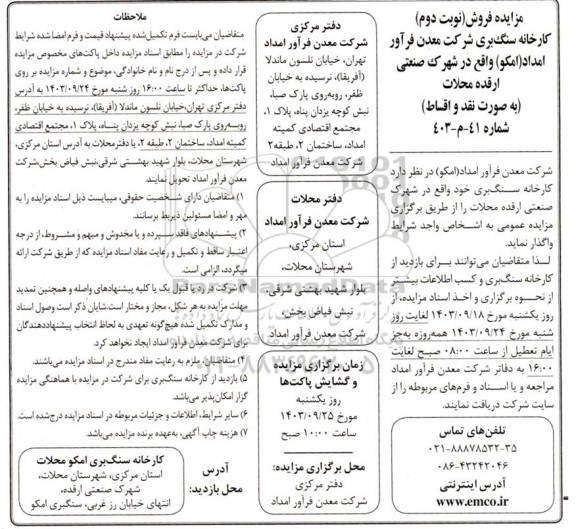 مزایده فروش(نوبت دوم)
کارخانه سنگ‌بری شرکت معدن فرآور
امداد(امکو) واقع در شهرک صنعتی
ارقده محلات
(به صورت نقد و اقساط)
شماره ۴۱-م-۴۰۳
شرکت معدن فرآور امداد(امکو) در نظر دارد
کارخانه سنگ‌بری خود واقع در شهرک
صنعتی ارقده محلات را از طریق برگزاری
مزایده عمومی به اشخاص واجد شرایط
واگذار نماید.
لذا متقاضیان می‌توانند برای بازدید از
کارخانه سنگ‌بری و کسب اطلاعات بیشتر
از نحوه برگزاری و اخذ اسناد مزایده، از
روز یکشنبه مورخ ۱۴۰۳/۰۹/۱۸ لغایت روز
شنبه مورخ ۱۴۰۳/۰۹/۲۴ همه‌روزه به‌جز
ایام تعطیل از ساعت ۰۸:۰۰ صبح لغایت
۱۶:۰۰ به دفاتر شرکت معدن فرآور امداد
مراجعه و یا اسناد و فرم‌های مربوطه را از
سایت شرکت دریافت نمایند.
تلفن‌های تماس
۰۲۱-۸۸۸۷۸۵۳۲-۳۵
۰۸۶-۴۳۲۴۲۰۴۶
آدرس اینترنتی
www.emco.ir
دفتر مرکزی
شرکت معدن فرآور امداد
تهران، خیابان نلسون ماندلا
(آفریقا)، نرسیده به خیابان
ظفر، روبه‌روی پارک صبا،
نبش کوچه یزدان پناه، پلاک ۱،
مجتمع اقتصادی کمیته
امداد، ساختمان ۲، طبقه۲
شرکت معدن فرآور امداد
دفتر محلات
شرکت معدن فرآور امداد
استان مرکزی،
شهرستان محلات،
بلوار شهید بهشتی شرقی،
نبش فیاض بخش،
شرکت معدن فرآور امداد
زمان برگزاری مزایده
و گشایش پاکت‌ها
روز یکشنبه
مورخ ۱۴۰۳/۰۹/۲۵
ساعت ۱۰:۰۰ صبح
محل برگزاری مزایده:
دفتر مرکزی
شرکت معدن فرآور امداد
ملاحظات
متقاضیان می‌بایست فرم تکمیل‌شده پیشنهاد قیمت و فرم امضا شده شرایط
شرکت در مزایده را مطابق اسناد مزایده داخل پاکت‌های مخصوص مزایده
قرار داده و پس از درج نام و نام خانوادگی، موضوع و شماره مزایده بر روی
پاکت‌ها، حداکثر تا ساعت ۱۶:۰۰ روز شنبه مورخ ۱۴۰۳/۰۹/۲۴ به آدرس
دفتر مرکزی تهران،خیابان نلسون ماندلا (آفریقا)، نرسیده به خیابان ظفر،
روبه‌روی پارک صبا، نبش کوچه یزدان پناه، پلاک ۱، مجتمع اقتصادی کمیته
امداد، ساختمان ۲، طبقه ۲، یا دفترمحلات به آدرس استان مرکزی،
شهرستان محلات، بلوار شهید بهشتی شرقی،نبش فیاض بخش،شرکت
معدن فرآور امداد تحویل نمایند.
۱) متقاضیان دارای شخصیت حقوقی، میبایست ذیل اسناد مزایده را به
مهر و امضا مسئولین ذیربط برسانند.
۲) پیشنهادهای فاقد سپرده و یا مخدوش و مبهم و مشروط، از درجه
اعتبار ساقط و تکمیل و رعایت مفاد اسناد مزایده که از طریق شرکت ارائه
میگردد، الزامی است.
۳) شرکت در رد یا قبول یک یا کلیه پیشنهادهای واصله و همچنین تمدید
مهلت مزایده به هر شکل، مجاز و مختار است.شایان ذکر است وصول اسناد
و مدارک تکمیل شده هیچ‌گونه تعهدی به لحاظ انتخاب پیشنهاددهندگان
برای شرکت معدن فرآور امداد ایجاد نخواهد کرد.
۴) متقاضیان ملزم به رعایت مفاد مندرج در اسناد مزایده می‌باشند.
۵) بازدید از کارخانه سنگ‌بری برای شرکت در مزایده با هماهنگی مزایده
گزار امکان‌پذیر می‌باشد.
۶) سایر شرایط، اطلاعات و جزئیات مربوطه در اسناد مزایده درج‌شده است.
۷) هزینه چاپ آگهی، به‌عهده برنده مزایده می‌باشد.
آدرس
محل بازدید:
کارخانه سنگ‌بری امکو محلات
استان مرکزی، شهرستان محلات،
شهرک صنعتی ارقده،
انتهای خیابان رز غربی، سنگبری امکو